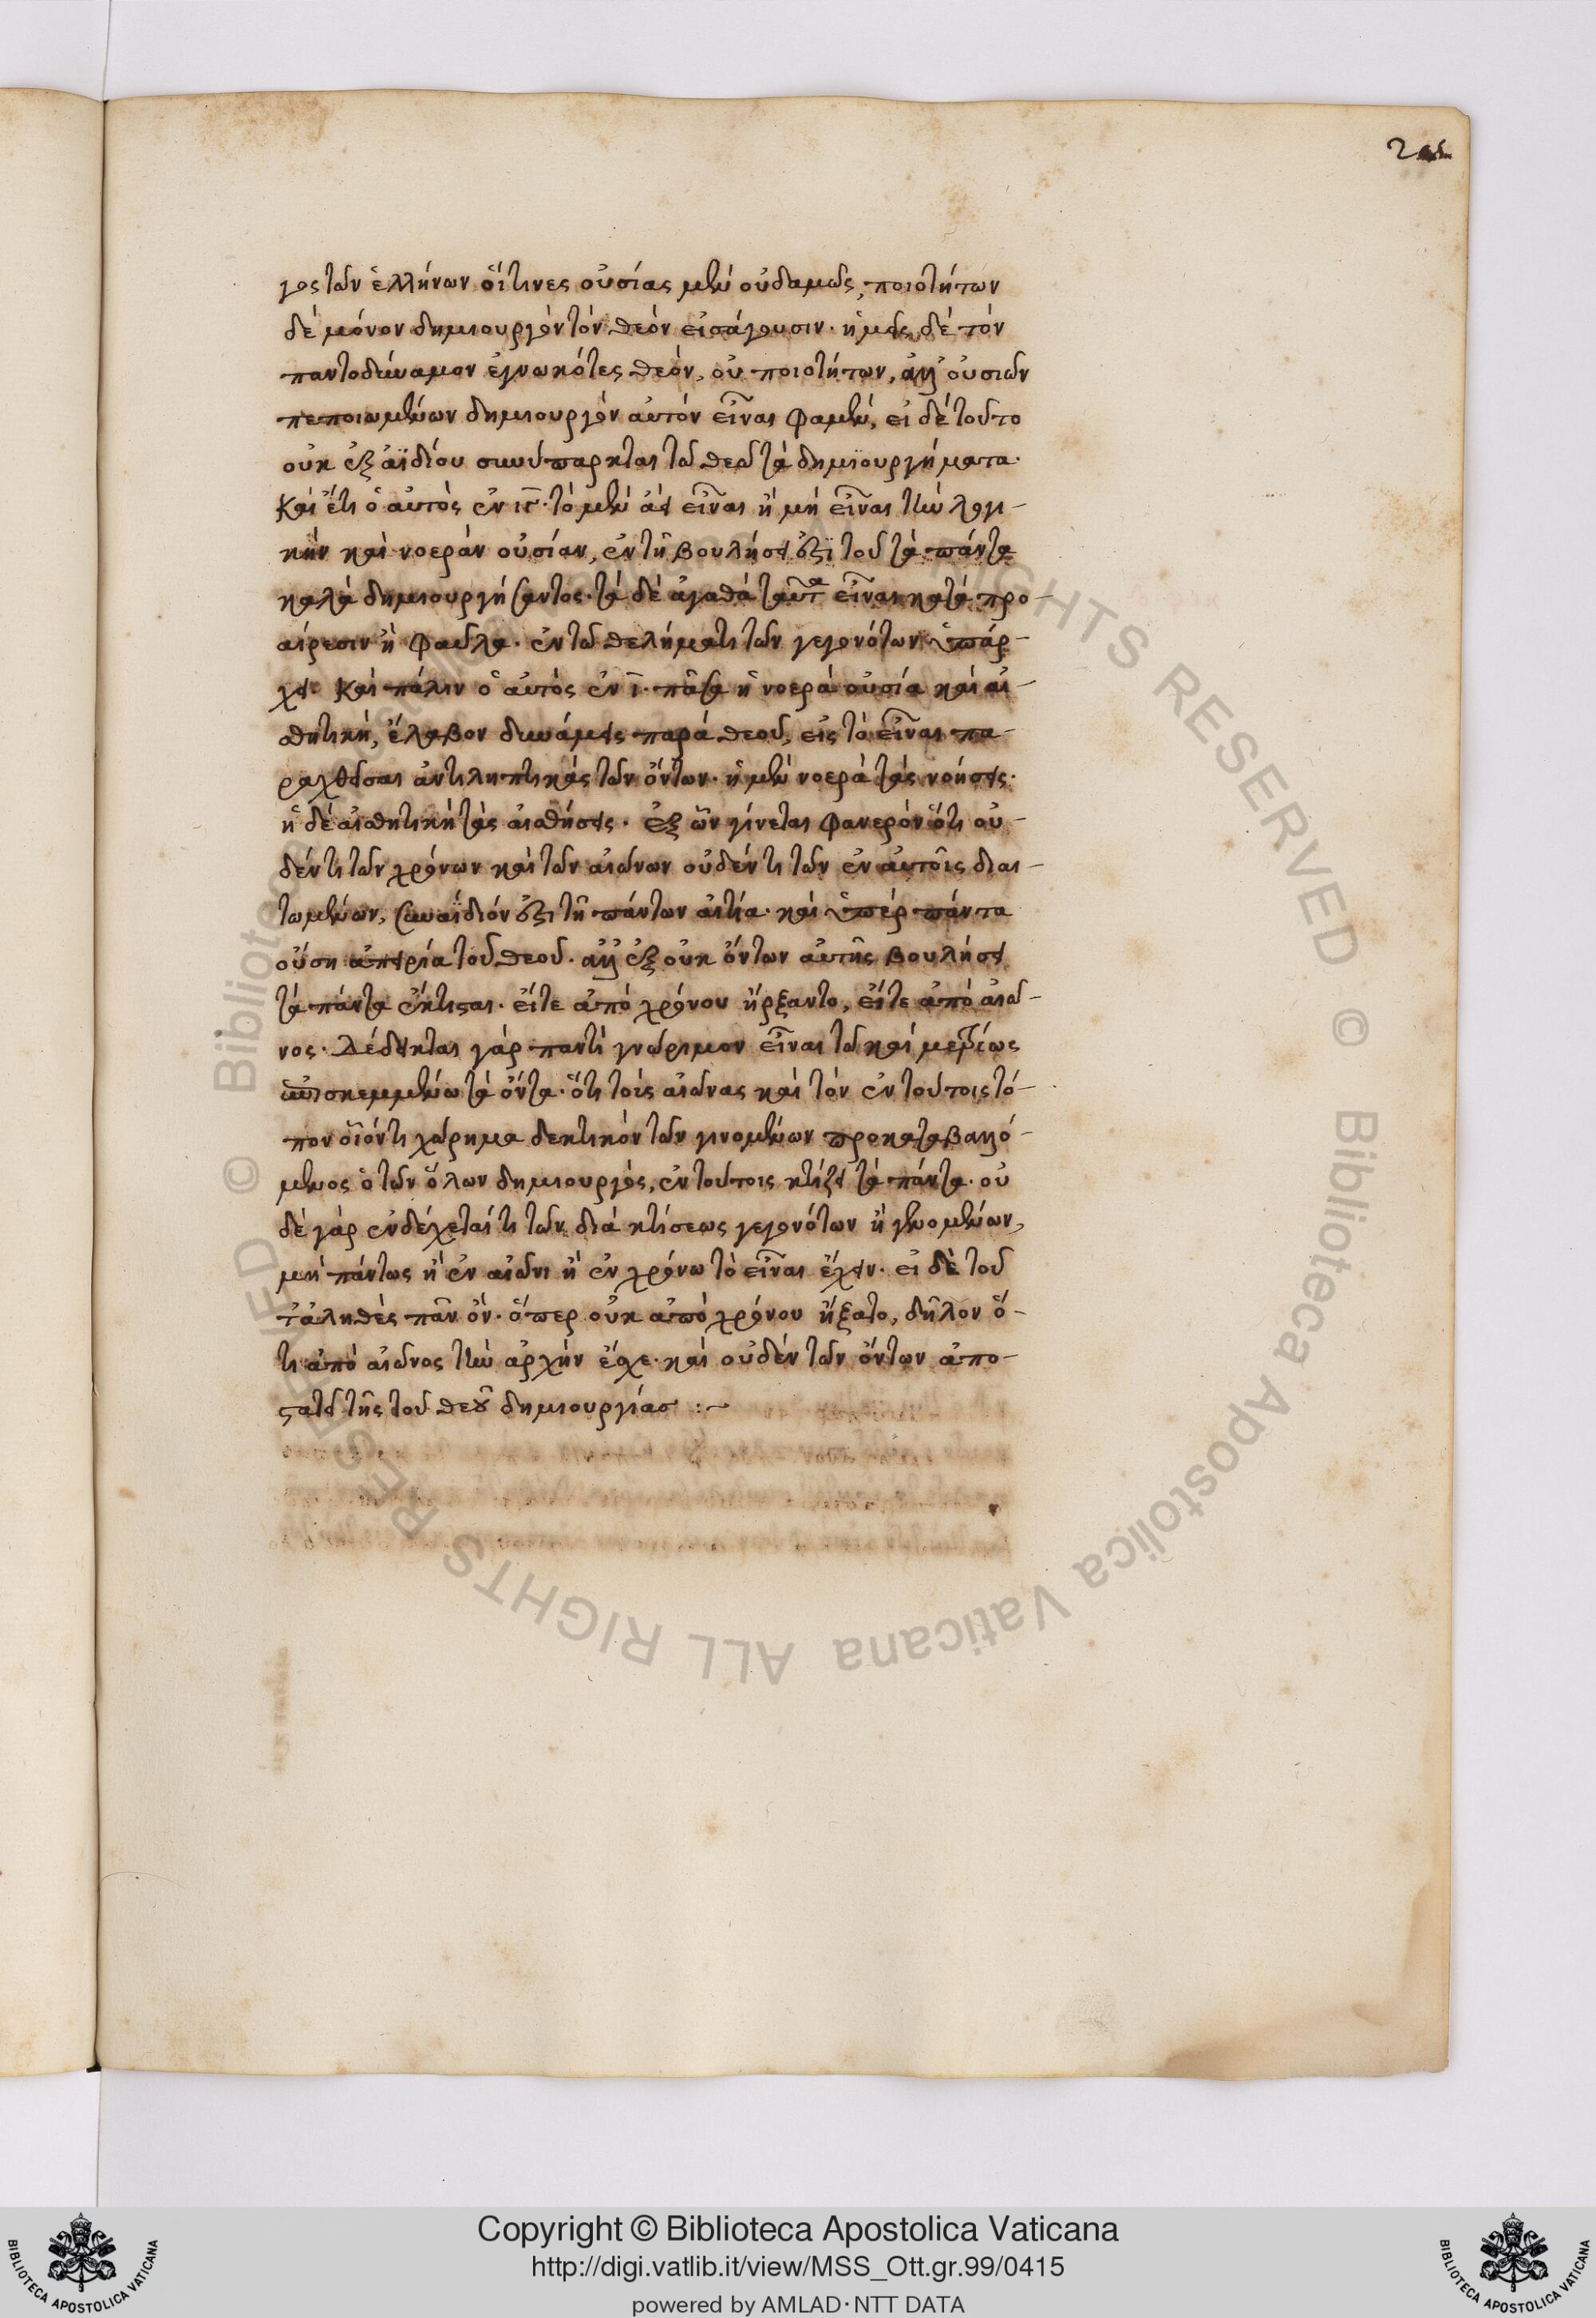 γος τῶν ἑλλήνων οἵτινες οὐσίας μὲν οὐδαμῶς, ποιοτήτων
δὲ μόνον δημιουργὸν τὸν θεὸν εἰσάγουσιν· ἡμεῖς δὲ τὸν
παντοδύναμον ἐγνωκότες θεὸν, οὐ ποιοτήτων, ἀλλ' οὐσιῶν
πεποιωμένων δημιουργὸν αὐτὸν εἶναι φαμὲν, εἰ δὲ τοῦτο
οὐκ ἐξ ἀϊδίου συνύπαρκται τῶ θεῶ τὰ δημϊουργήματα·
Καὶ ἔτι ὁ αὐτὸς ἐν · τὸ μὲν ἀεὶ εἶναι ἢ μὴ εἶναι τὴν λογι-
κὴν καὶ νοερὰν οὐσίαν, ἐν τῆ βουλήσει ἐστὶ τοῦ τὰ πάντα
καλὰ δημιουργήσαντος· τὰ δὲ ἀγαθὰ ταῦτα εἶναι κατὰ προ-
αίρεσιν ἢ φαῦλα· ἐν τῶ θελήματι τῶν γεγονότων ὑπάρ-
χει· Καὶ πάλιν ὁ αὐτὸς ἐν ι· πᾶσα ἡ νοερὰ οὐσία καὶ αἰ-
σθητικὴ, ἔλαβον δυνάμεις παρὰ θεοῦ, εἰς τὸ εἶναι πα-
ραχθεῖσαι ἀντιληπτικὰς τῶν ὄντων· ἡ μὲν νοερὰ τὰς νοήσεις·
ἡ δὲ αἰσθητικὴ τὰς αἰσθήσεις· ἐξ ὧν γίνεται φανερὸν ὅτι οὐ-
δέν τι τῶν χρόνων καὶ τῶν αἰώνων οὐδέν τι τῶν ἐν αὐτοῖς διαι-
τωμένων, συναΐδιόν ἐστι τῆ πάντων αἰτία· καὶ ὑπὲρ πάντα
οὔση ἀπειρία τοῦ θεοῦ· ἀλλ' ἐξ οὐκ ὄντων αὐτῆς βουλήσει
τὰ πάντα ἔκτισται· εἴτε ἀπὸ χρόνου ἤρξαντο, εἴτε ἀπὸ αἰῶ-
νος· Δέδεικται γὰρ παντὶ γνώριμον εἶναι τῶ καὶ μετρίως
ἐπεσκεμμένω τὰ ὄντα· ὅτι τοὺς αἰῶνας καὶ τὸν ἐν τούτοις τό-
πον οἷόν τι χώρημα δεκτικὸν τῶν γινομένων προκαταβαλλό-
μενος ὁ τῶν ὅλων δημιουργὸς, ἐν τούτοις κτίζει τὰ πάντα· οὐ
δὲ γὰρ ἐνδέχεταί τι τῶν διὰ κτίσεως γεγονότων ἢ γενομένων,
μὴ πάντως ἢ ἐν αἰῶνι ἢ ἐν χρόνω τὸ εἶναι ἔχειν· εἰ δὲ τοῦ
τ' ἀληθὲς πᾶν ὂν· ὅπερ οὐκ ἀπὸ χρόνου ἤξατο, δῆλον ὅ-
τι ἀπὸ αἰῶνος τὴν ἀρχὴν ἔσχε· καὶ οὐδὲν τῶν ὄντων ἀπο-
στατεῖ τῆς τοῦ θεοῦ δημιουργίας :~
Copyright © Biblioteca Apostolica Vaticana
http://digi.vatlib.it/view/MSS_Ott.gr.99/0415
powered by AMLAD·NTT DATA